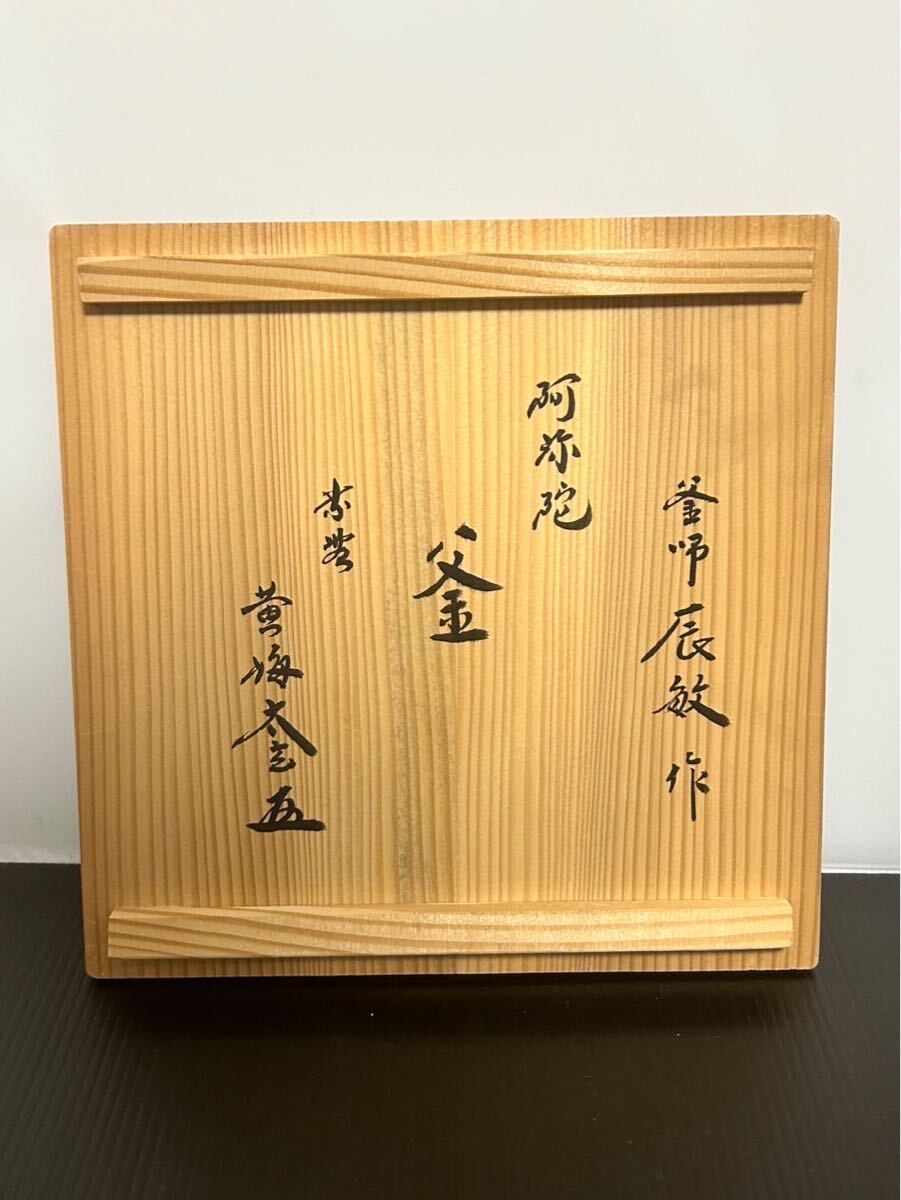 釜師 辰敏 作
阿弥陀
釜
紫野
黄梅太玄